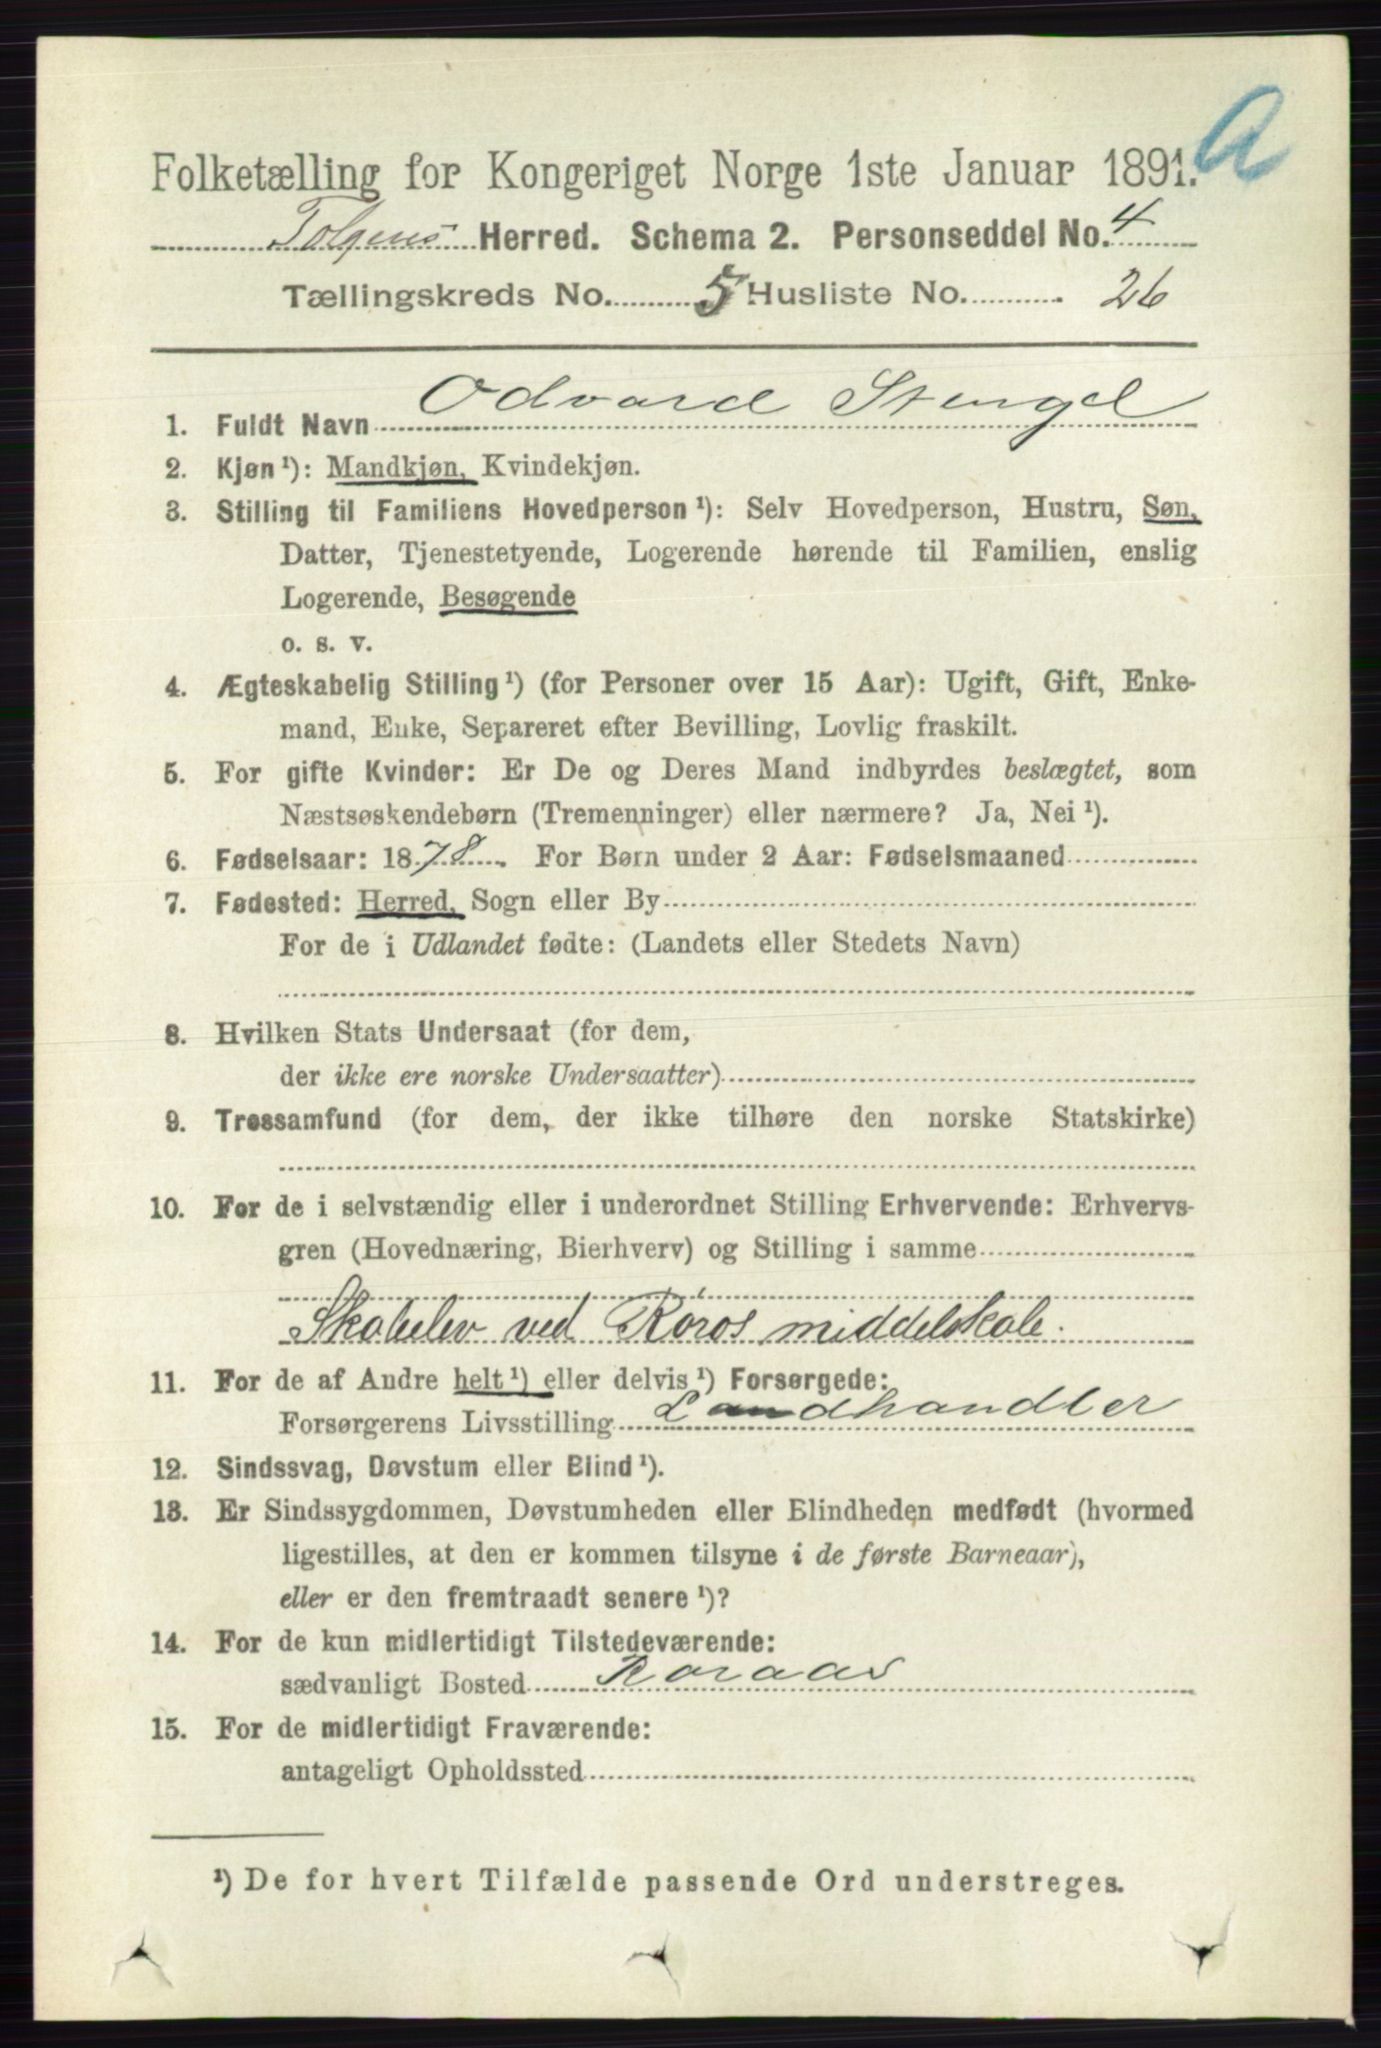 A
Folketælling for Kongeriget Norge 1ste Januar 1891.
Tolgens Herred. Schema 2. Personseddel No. 4
Tællingskreds No. 5 Husliste No. 26
1. Fuldt Navn Odvard Stengel
2. Kjøn ¹): Mandkjøn, Kvindekjøn.
3. Stilling til Familiens Hovedperson ¹): Selv Hovedperson, Hustru, Søn,
Datter, Tjenestetyende, Logerende hørende til Familien, enslig
Logerende, Besøgende
o. s. v.
4. Ægteskabelig Stilling ¹) (for Personer over 15 Aar): Ugift, Gift, Enke-
mand, Enke, Separeret efter Bevilling, Lovlig fraskilt.
5. For gifte Kvinder: Er De og Deres Mand indbyrdes beslægtet, som
Næstsøskendebørn (Tremenninger) eller nærmere? Ja, Nei ¹).
6. Fødselsaar: 1878. For Børn under 2 Aar: Fødselsmaaned
7. Fødested: Herred, Sogn eller By
For de i Udlandet fødte: (Landets eller Stedets Navn)
8. Hvilken Stats Undersaat (for dem,
der ikke ere norske Undersaatter)
9. Trossamfund (for dem, der ikke tilhøre den norske Statskirke)
10. For de i selvstændig eller i underordnet Stilling Erhvervende: Erhvervs-
gren (Hovednæring, Bierhverv) og Stilling i samme
Skolelev ved Røros middelskole.
11. For de af Andre helt ¹) eller delvis ¹) Forsørgede:
Forsørgerens Livsstilling Landhandler
12. Sindssvag, Døvstum eller Blind ¹).
13. Er Sindssygdommen, Døvstumheden eller Blindheden medfødt (hvormed
ligestilles, at den er kommen tilsyne i de første Barneaar),
eller er den fremtraadt senere ¹)?
14. For de kun midlertidigt Tilstedeværende:
sædvanligt Bosted Roraas
15. For de midlertidigt Fraværende:
antageligt Opholdssted
¹) De for hvert Tilfælde passende Ord understreges.